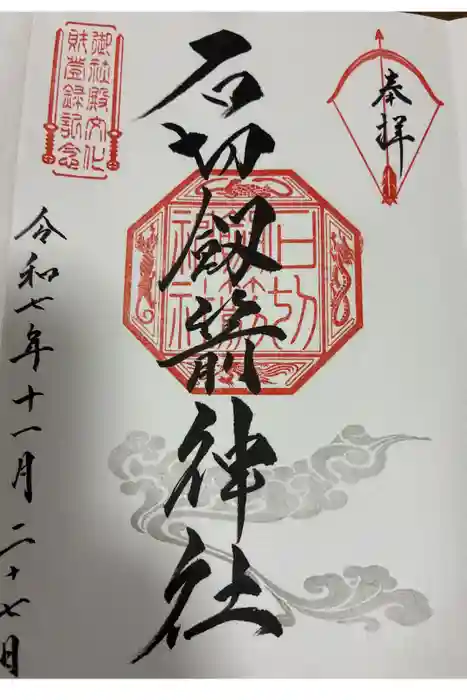 奉拝
石切劔箭神社
石切
劔箭
神社
御社殿文化
財登録記念
令和七年十一月二十七日